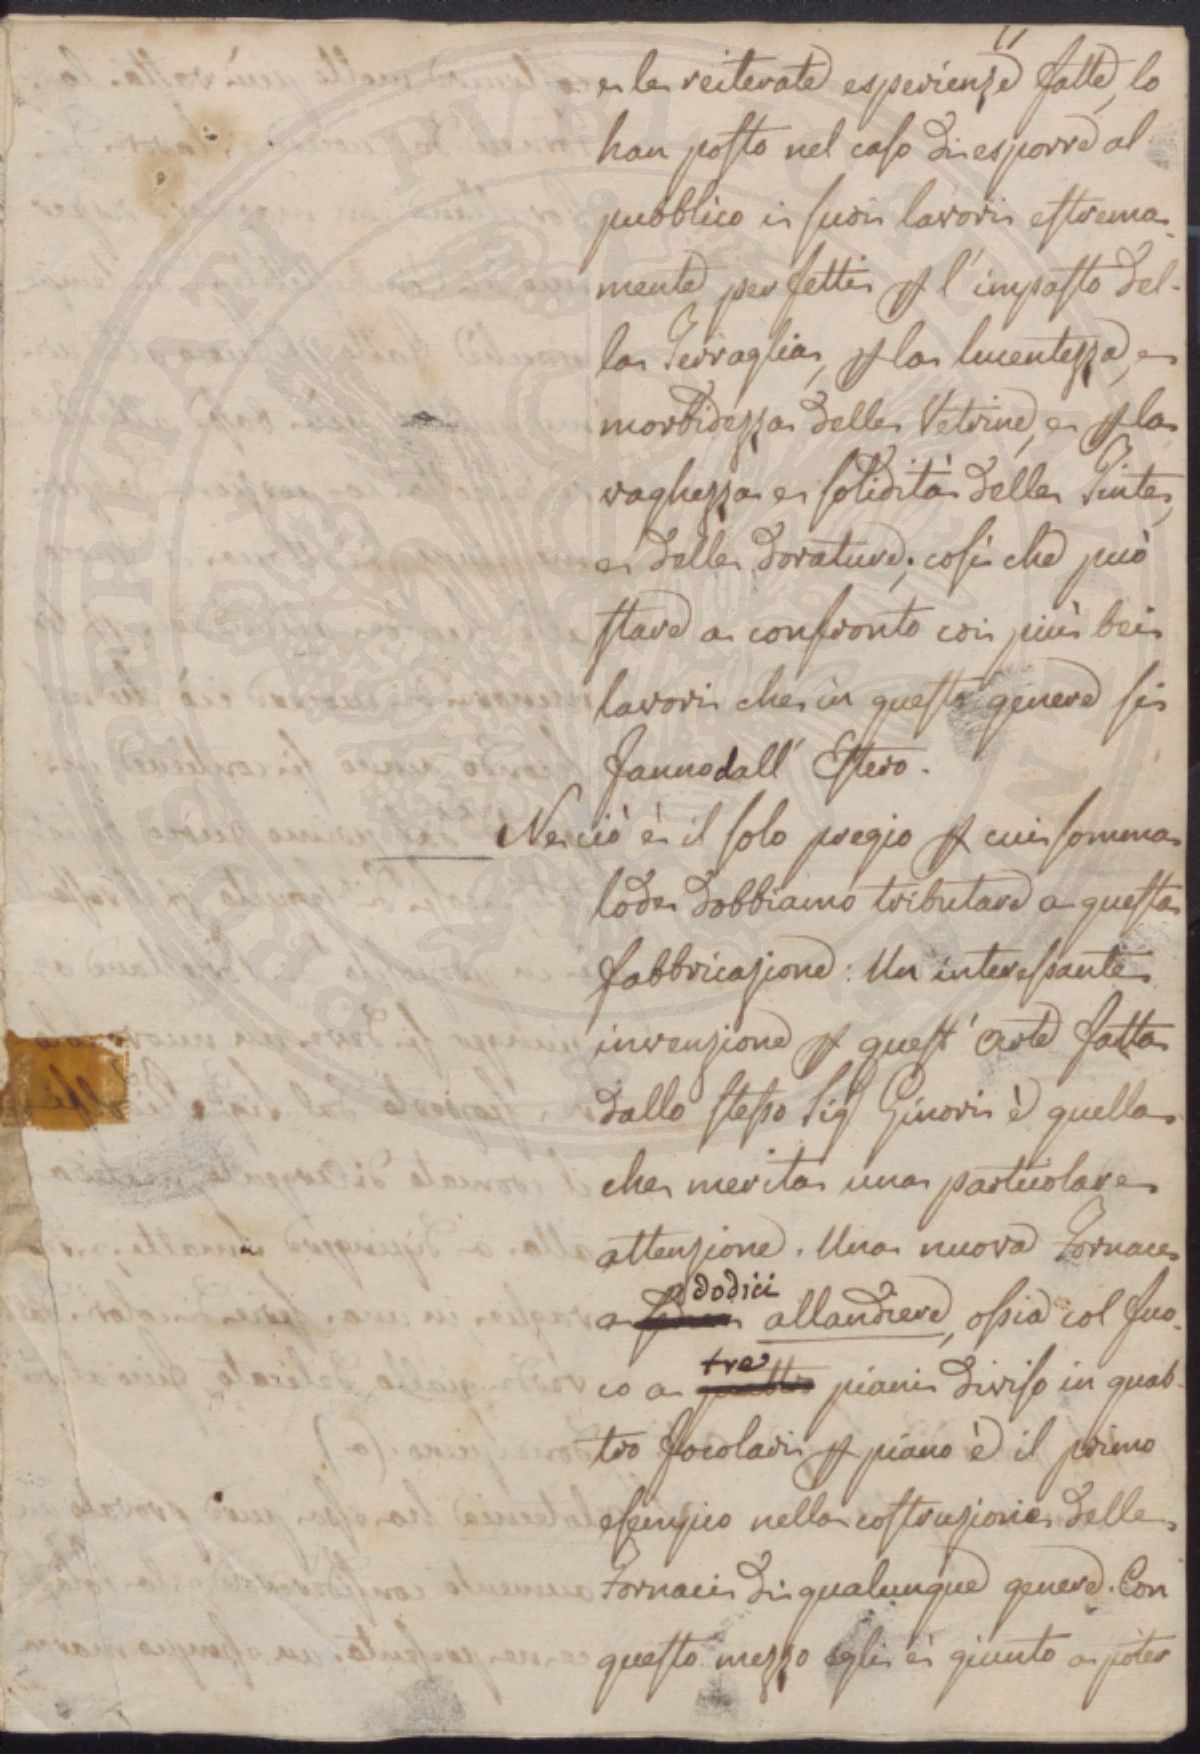 e le reiterate esperienze fatte, lo
han posto nel caso di esporre al
pubblico i suoi lavori estrema-
mente perfetti p l'impasto del-
la Terraglia, p la lucentezza, e
morbidezza delle Vetrine, e p la
vaghezza e solidità delle Tinte,
e delle dorature; così che può
stare a confronto coi più bei
lavori che in questo genere si
fanno dall' Estero.
Ne ciò è il solo pregio p cui somma
lode dobbiamo tributare a questa
fabbricazione: Un interessante
invenzione p quest' arte fatta
dallo stesso Sig Ginori è quella
che merita una particolare
attenzione. Una nuova Fornace
a dodici allandiere, ossia col fuo-
co a tre piani diviso in quat-
tro focolari p piano è il primo
esempio nella costruzione delle
Fornaci di qualunque genere. Con
questo mezzo egli è giunto a poter